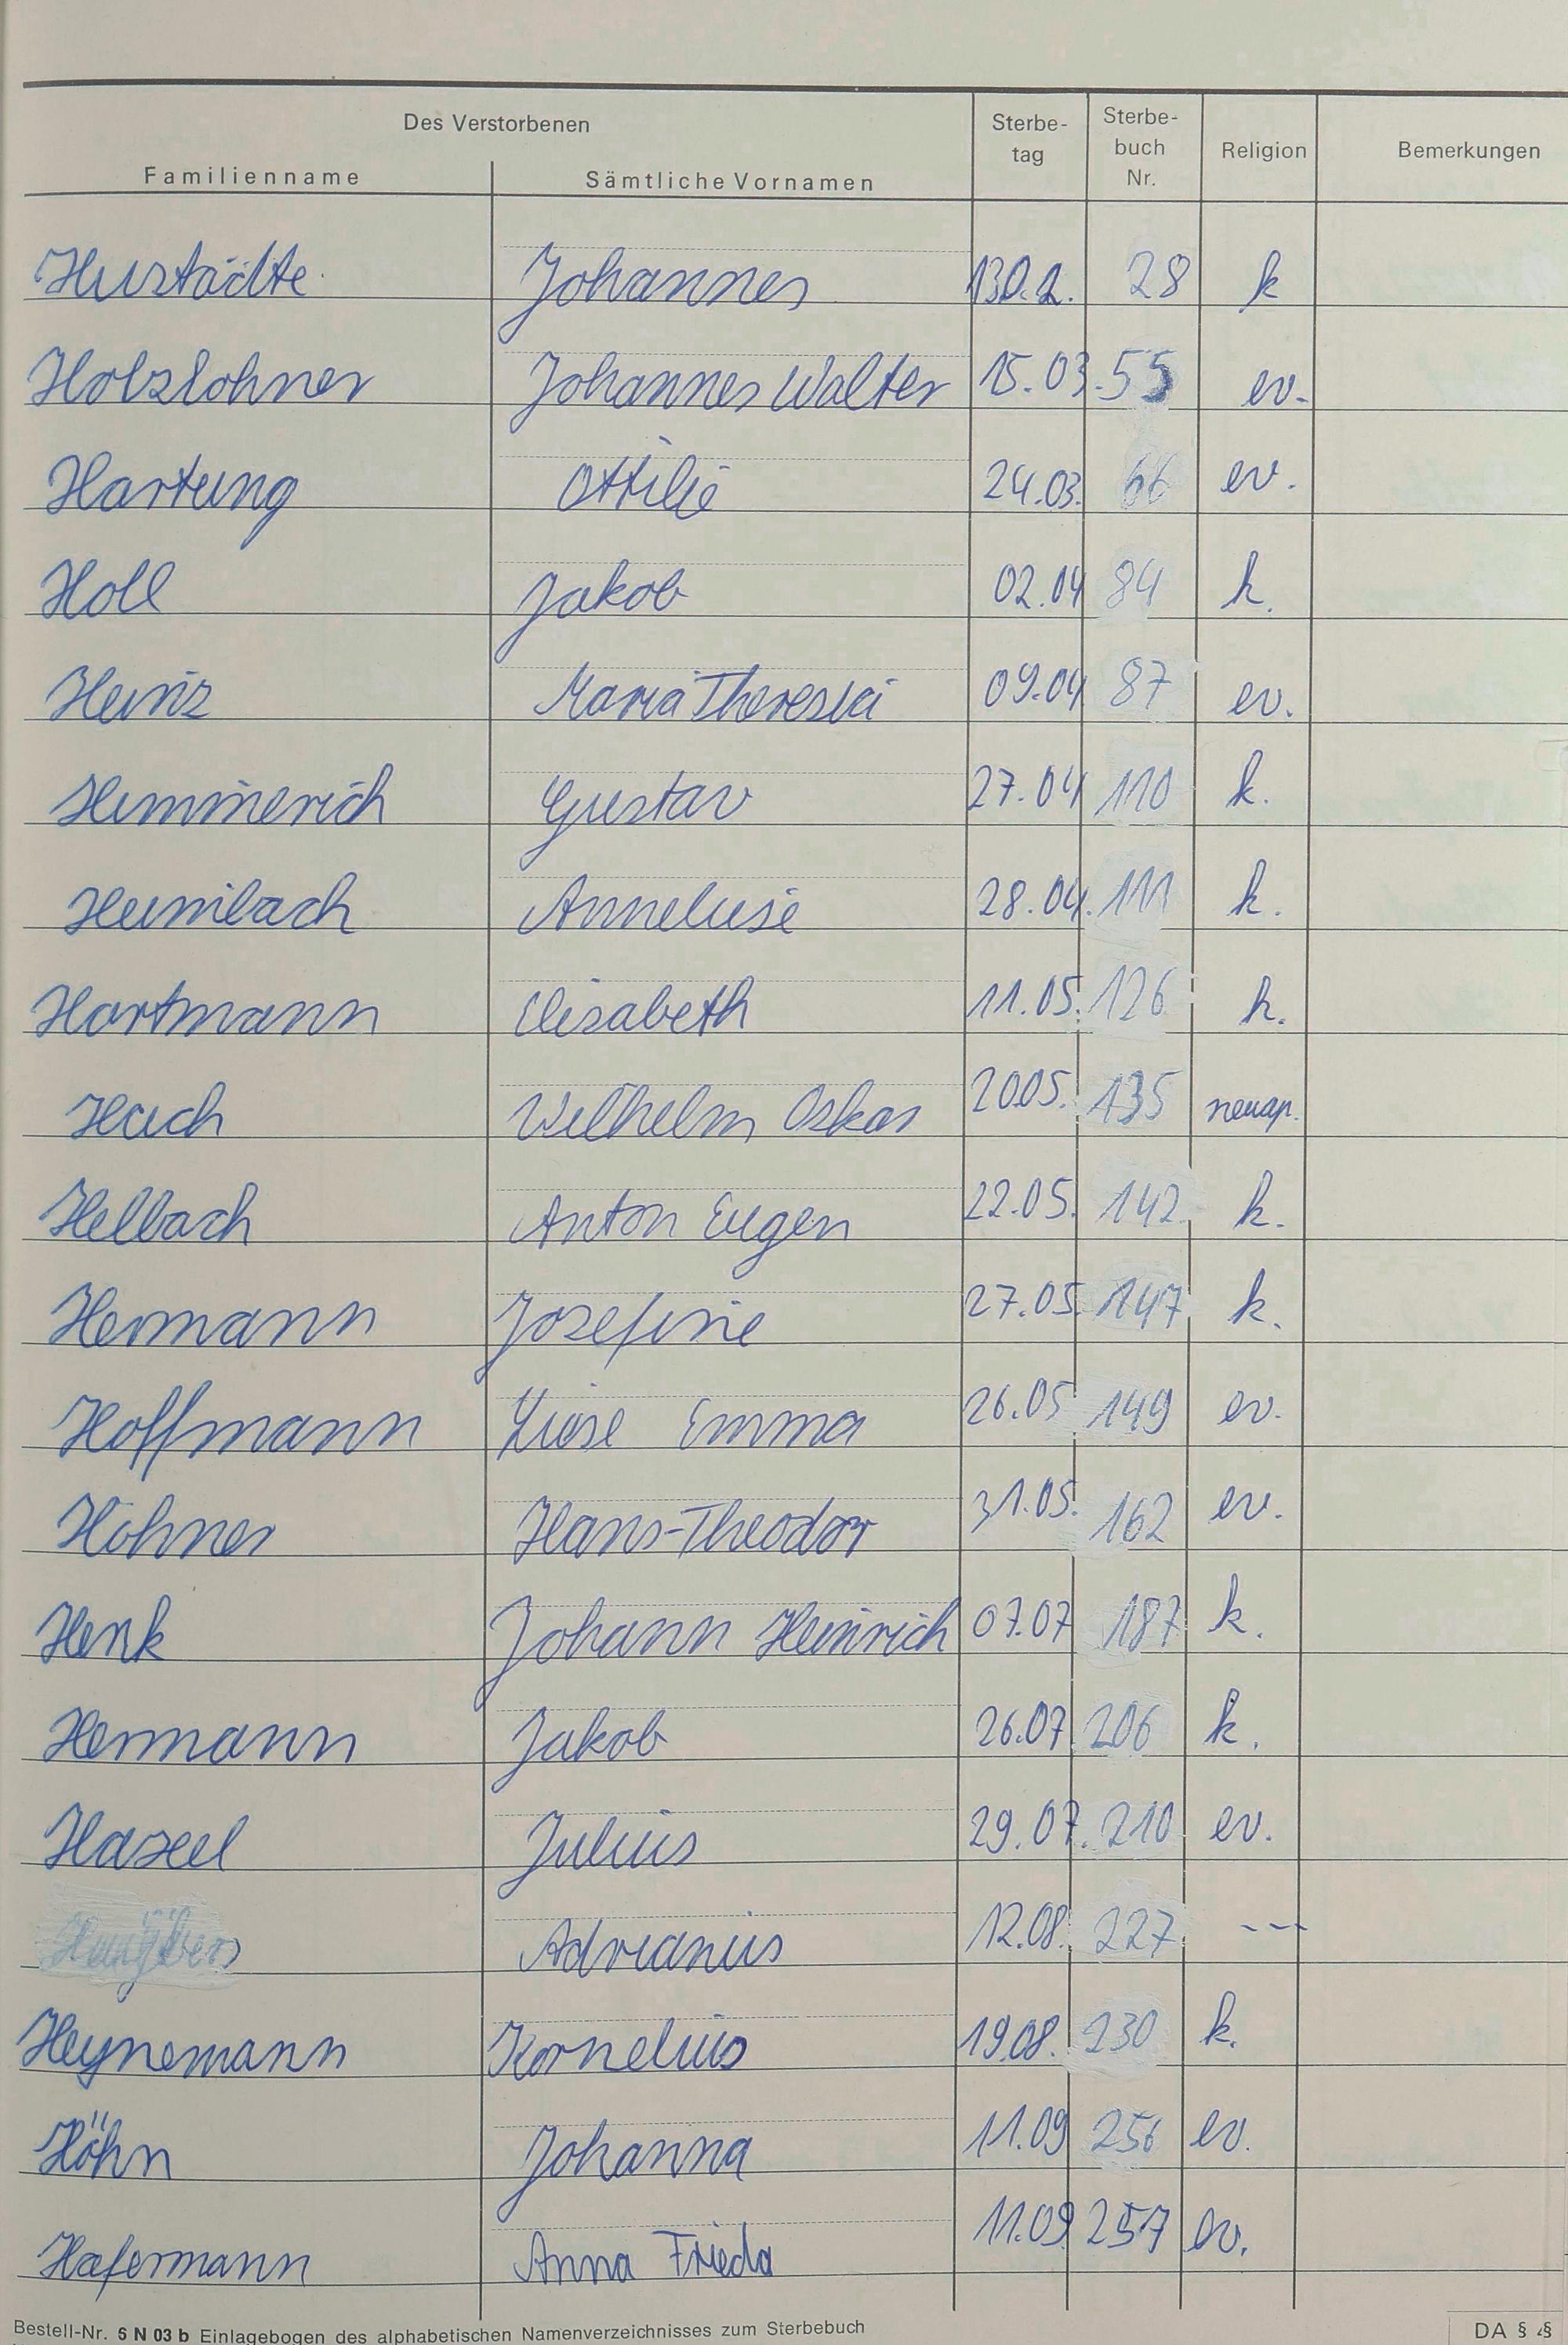 Des Verstorbenen
Familienname Sämtliche Vornamen Sterbe-tag Sterbe-buch Nr. Religion Bemerkungen
Hustädte Johannes 28 k
Holzlohner Johannes Walter 15.03. 55 ev.
Hartung Ottilie 24.03. 66 ev.
Holl Jakob 02.04 84 k.
Heinz Maria Theresia 09.04 87 ev.
Hemmerich Gustav 27.04 110 k.
Heimbach Anneliese 28.04. 111 k.
Hartmann Elisabeth 11.05. 126 k.
Hech Wilhelm Oskar 20.05. 135 neuap.
Helbach Anton Eugen 22.05. 142 k.
Hermann Josefine 27.05. 147 k.
Hoffmann Luise Emma 26.05 149 ev.
Höhner Hans-Theodor 31.05. 162 ev.
Henk Johann Heinrich 07.07 187 k.
Hermann Jakob 26.07 206 k.
Haseel Julius 29.07. 210 ev.
Adrianus 12.08. 227 ---
Heynemann Kornelius 19.08. 230 k.
Höhn Johanna 11.09 256 ev.
Hafermann Anna Frieda 11.09 257 ev.
Bestell-Nr. 6 N 03 b Einlagebogen des alphabetischen Namenverzeichnisses zum Sterbebuch DA §